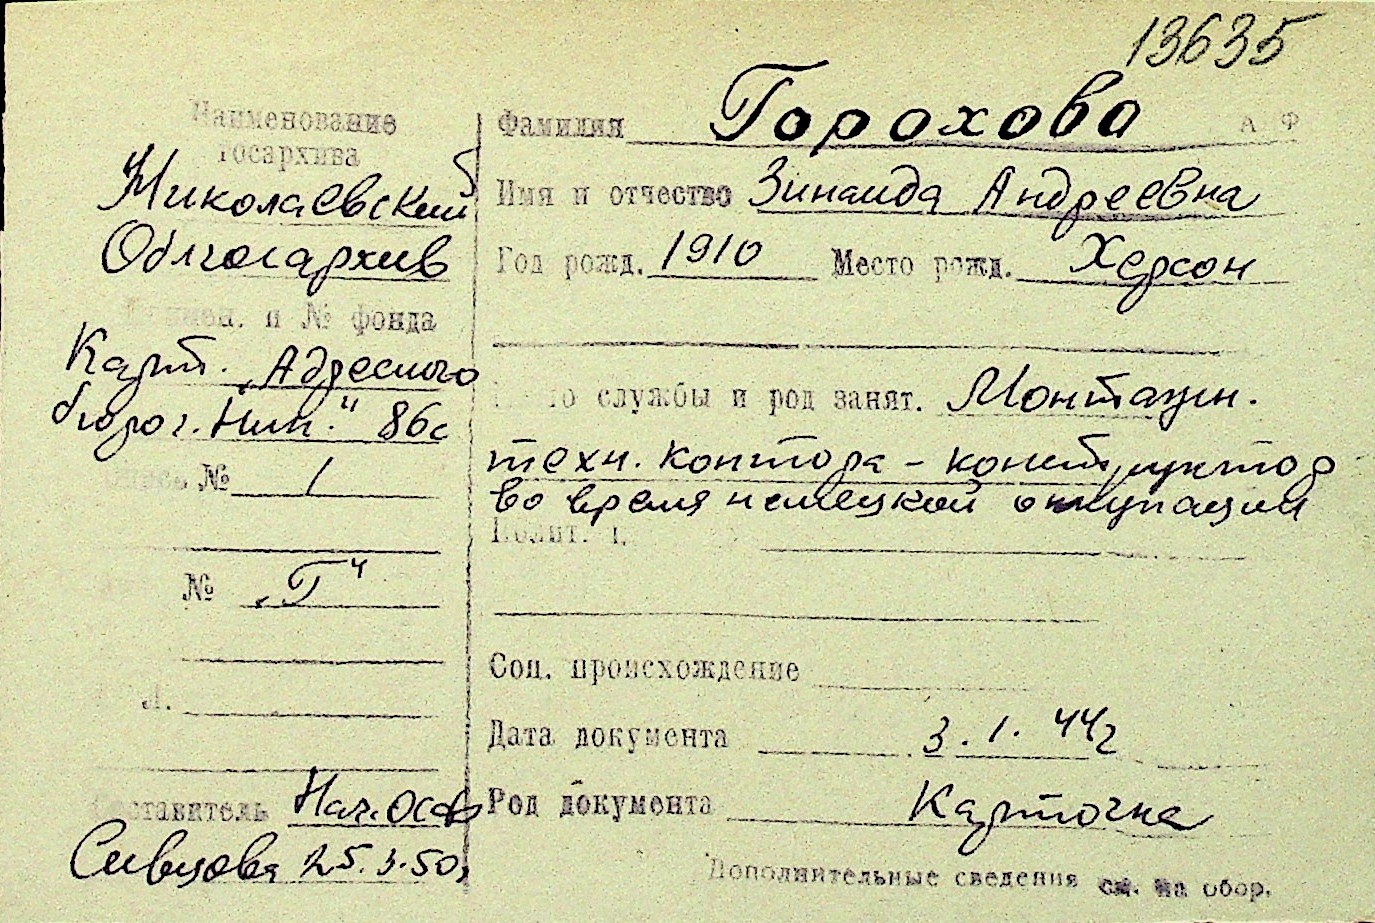 13635
Наименование
госархива
Николаевский
Облгосархив
и № фонда
Карт. „Адресного
бюро г. Ник." 86с
№ 1
№ „Г"
Л.
Составитель Нач. ОСФ
Сивцова 25.3.50г
Фамилия Горохова А Ф
Имя и отчество Зинаида Андреевна
Год рожд. 1910 Место рожд. Херсон
службы и род занят. Монтажн.
техн. контора - конструктор
во время немецкой оккупации
Соц. происхождение
Дата документа 3.1.44г
Род документа Карточка
Дополнительные сведения см. на обор.